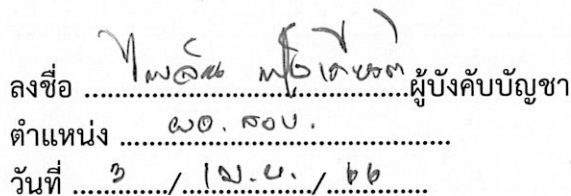 ลงชื่อ ........................................ผู้บังคับบัญชา
ตำแหน่ง ผอ. สอบ.
วันที่ 3 / เม.ย. / 66